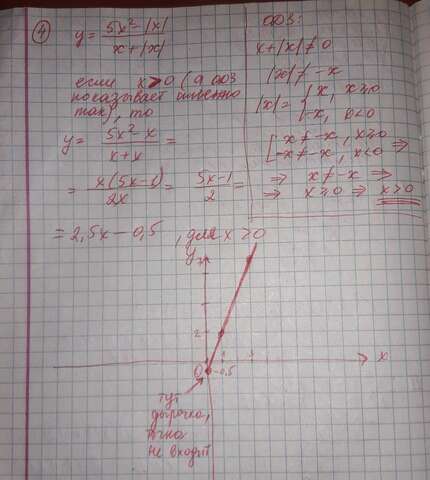 ④ y = (5x² - |x|) / (x + |x|)
если x > 0 (а одз
показывает именно
так), то
y = (5x² x) / (x + x) =
= x(5x-1) / 2x = (5x-1) / 2 =
= 2,5x - 0,5 , для x > 0
одз:
x + |x| ≠ 0
|x| ≠ -x
|x| = { x, x ≥ 0
-x, x < 0
[ x ≠ -x, x ≥ 0
-x ≠ -x, x < 0 ⇒
⇒ x ≠ -x ⇒
⇒ x ≥ 0 ⇒ x > 0
y
2
0
-0,5
x
тут
дырочка,
точка
не входит